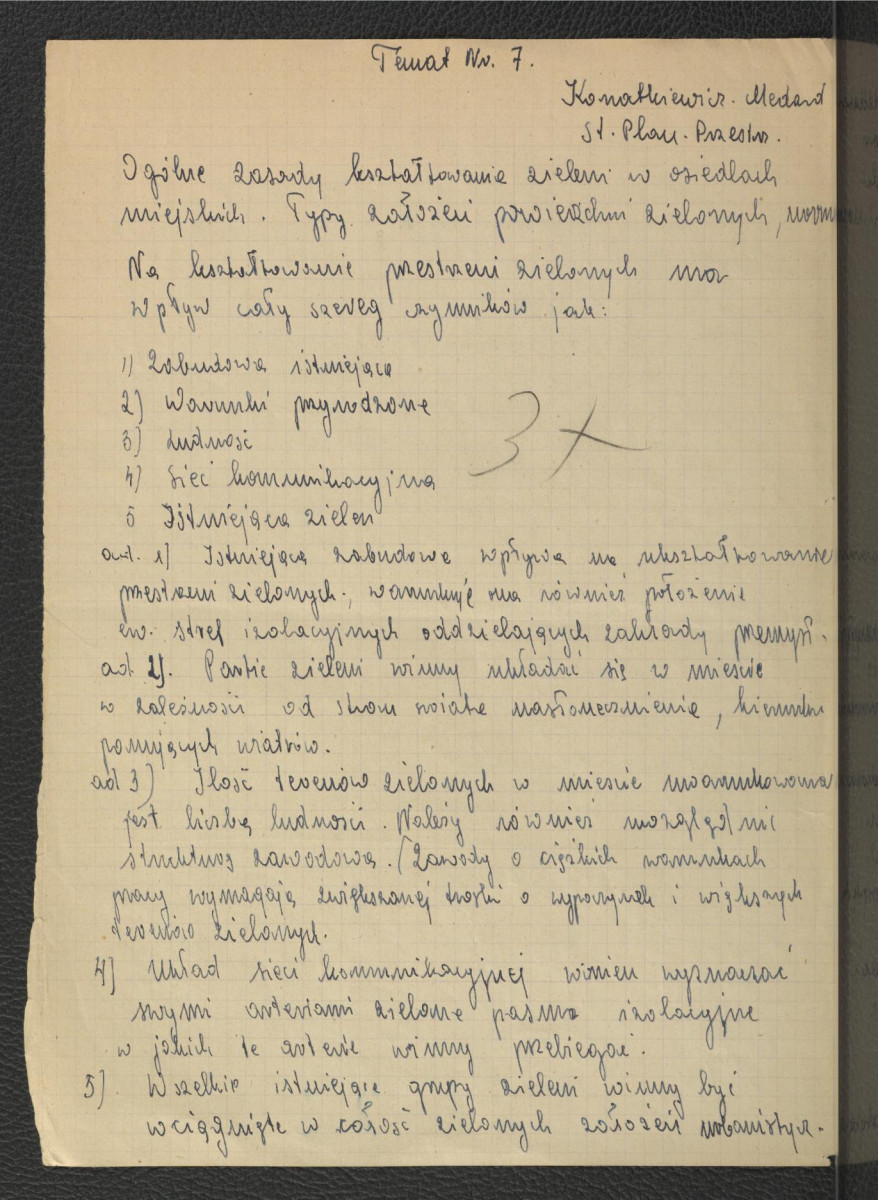 Temat Nr. 7.
Konatkiewicz. Medard
St. Plan. Przestrz.
Ogólne zasady kształtowania zieleni w osiedlach
miejskich. Typy założeń powierzchni zielonych,
Na kształtowanie przestrzeni zielonych ma
wpływ cały szereg czynników jak:
1) Zabudowa istniejąca
2) Warunki przyrodzone
3) Ludność
4) Sieć komunikacyjna
5 Istniejąca zieleń
3+
ad. 1] Istniejąca zabudowa wpływa na ukształtowanie
przestrzeni zielonych, warunkuje ona również położenie
ew. stref izolacyjnych oddzielających zakłady przemysł.
ad 2]. Partie zieleni winny układać się w mieście
w zależności od stron świata nasłonecznienia,
panujących wiatrów.
ad 3) Ilość terenów zielonych w mieście uwarunkowana
jest liczbą ludności. Należy również uwzględnić
strukturę zawodową. (Zawody o ciężkich warunkach
pracy wymagają zwiększonej troski o wypoczynek i większych
terenów zielonych.
4] Układ sieci komunikacyjnej winien wyznaczać
swymi arteriami zielone pasma izolacyjne
w jakich te arterie winny przebiegać.
5] Wszelkie istniejące grupy zieleni winny być
wciągnięte w całość zielonych założeń urbanistycz.